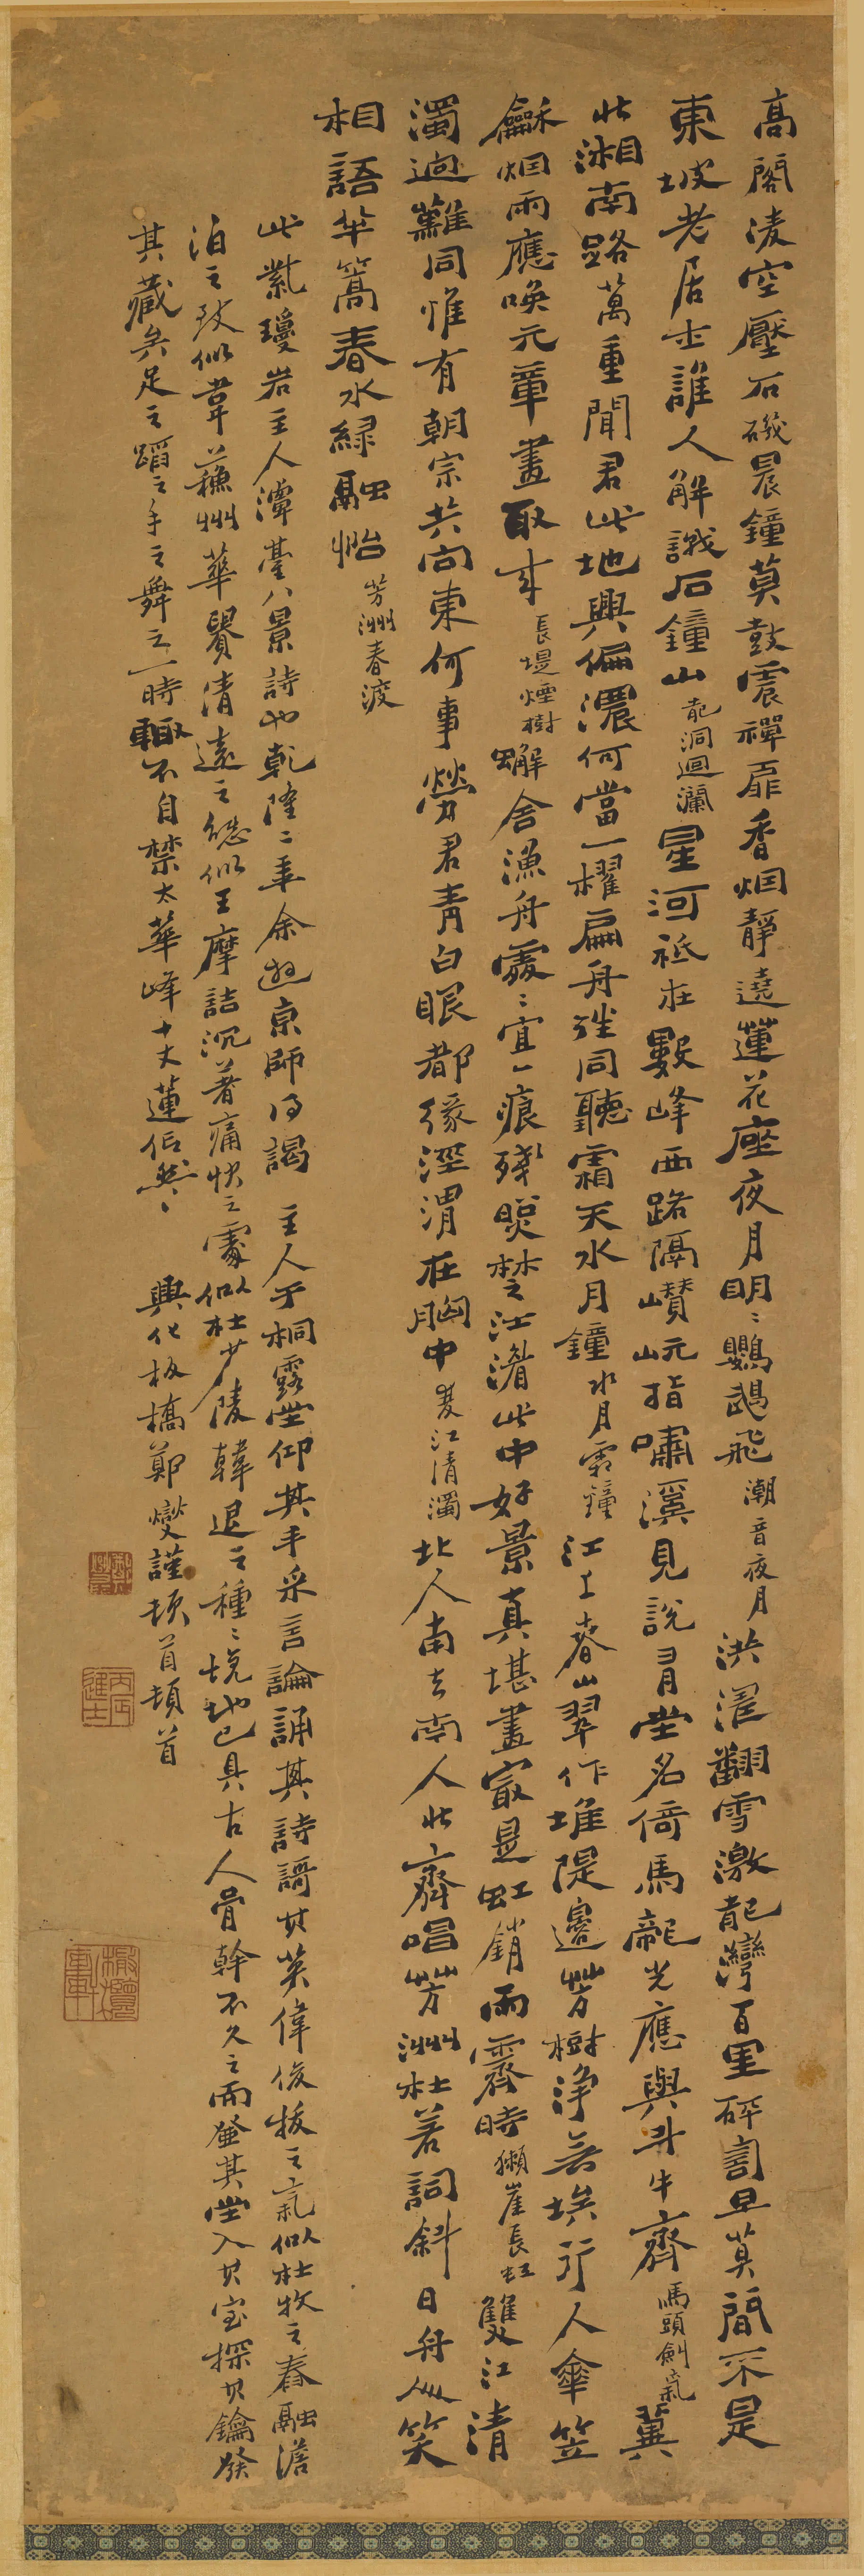 高閣淩空壓石磯晨鐘莫鼓震禪扉香烟靜遶蓮花座夜月明〻鸚鵡飛潮音夜月洪濤翻雪激龍灣百里砰訇旦莫間不是
東坡老居士誰人解識石鐘山龍洞迴瀾星河祗在數峰西路隔巑岏指嘯溪見說習堂名倚馬龍光應與斗牛齊馬頭劍氣冀
北湘南路萬重聞君此地興偏濃何當一櫂扁舟繫同聽霜天水月鐘水月霜鐘江上春山翠作堆隄邊芳樹淨無埃行人傘笠
龢烟雨應喚元章畫取來長堤煙樹蠏舍漁舟處〻宜一痕殘照楚江湄此中好景真堪畫最是虹銷雨霽時獺崖長虹雙江清
濁迥難同惟有朝宗共向東何事勞君青白眼都緣涇渭在胸中雙江清濁北人南去南人北齊唱芳洲杜若詞斜日舟人笑
相語半篙春水綠融怡芳洲春渡
此紫瓊岩主人潭臺八景詩也乾隆二年余遊京師得謁主人于桐露堂仰其手采言論誦其詩謌其英偉俊拔之氣似杜牧之春融澹
泊之致似韋蘇州華贍清遠之態似王摩詰沉著痛快之處似杜少陵韓退之種〻境地已具古人骨幹不久之而登其堂入其室探其鑰發
其藏矣足之蹈之手之舞之一時輒不自禁太華峰十丈蓮佀然〻興化板橋鄭燮謹頓首頓首
鄭燮
丙辰進士
橄欖軒